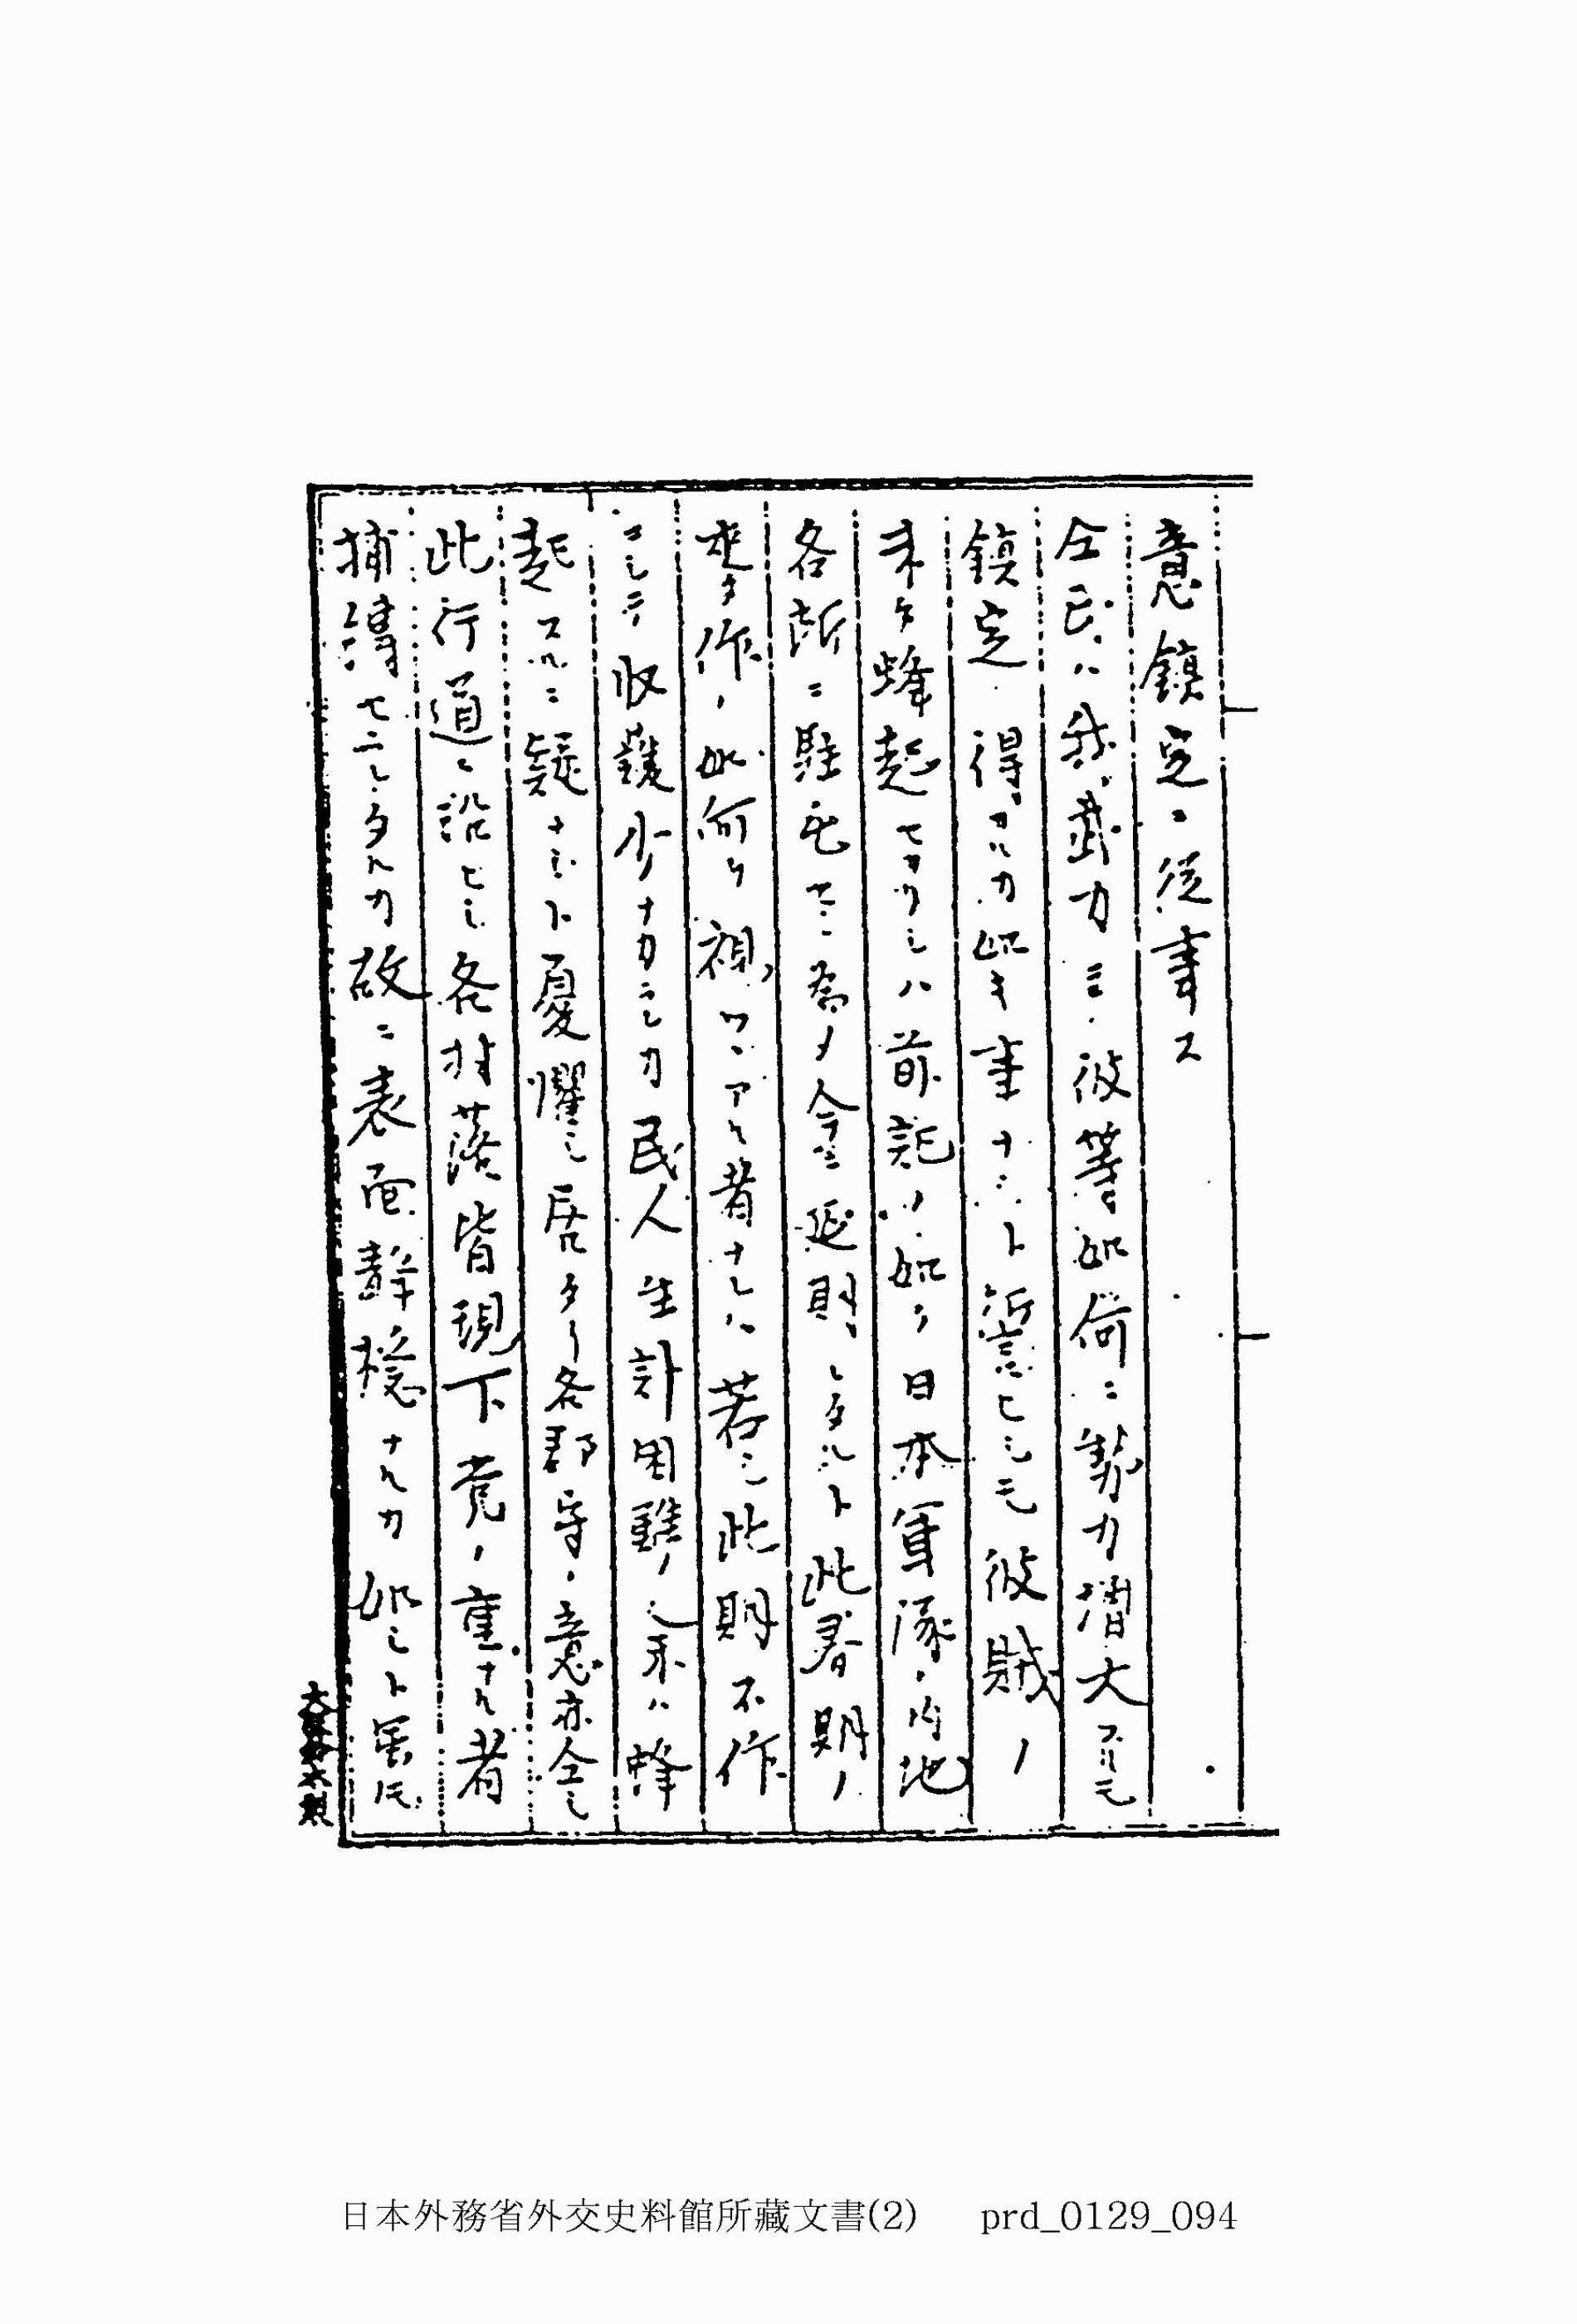 意鎮定ニ從事ス
全民ハ我武力ニ彼等如何ニ勢力增大スルモ
鎮定得ルカ如キ事ナシト誓ヒシモ彼賊ノ
未タ蜂起セサリシハ前記ノ如ク日本軍隊ノ内地
各所ニ駐屯セシ為メ今ニ延期シタルト此春期ノ
麥作ノ如何ヲ視ツヽアル者ナレハ若シ此期不作
ニシテ收穫少ナカランカ民人生計困難ノ余ハ蜂
起スルニ疑ナシト憂懼シ居タリ各郡守ノ意亦全シ
此行道ニ沿ヒシ各村落皆現下党ノ重ナル者
捕縛セラレタルカ故ニ表面靜穩ナルカ如シト雖氏
日本外務省外交史料館所藏文書(2) prd_0129_094